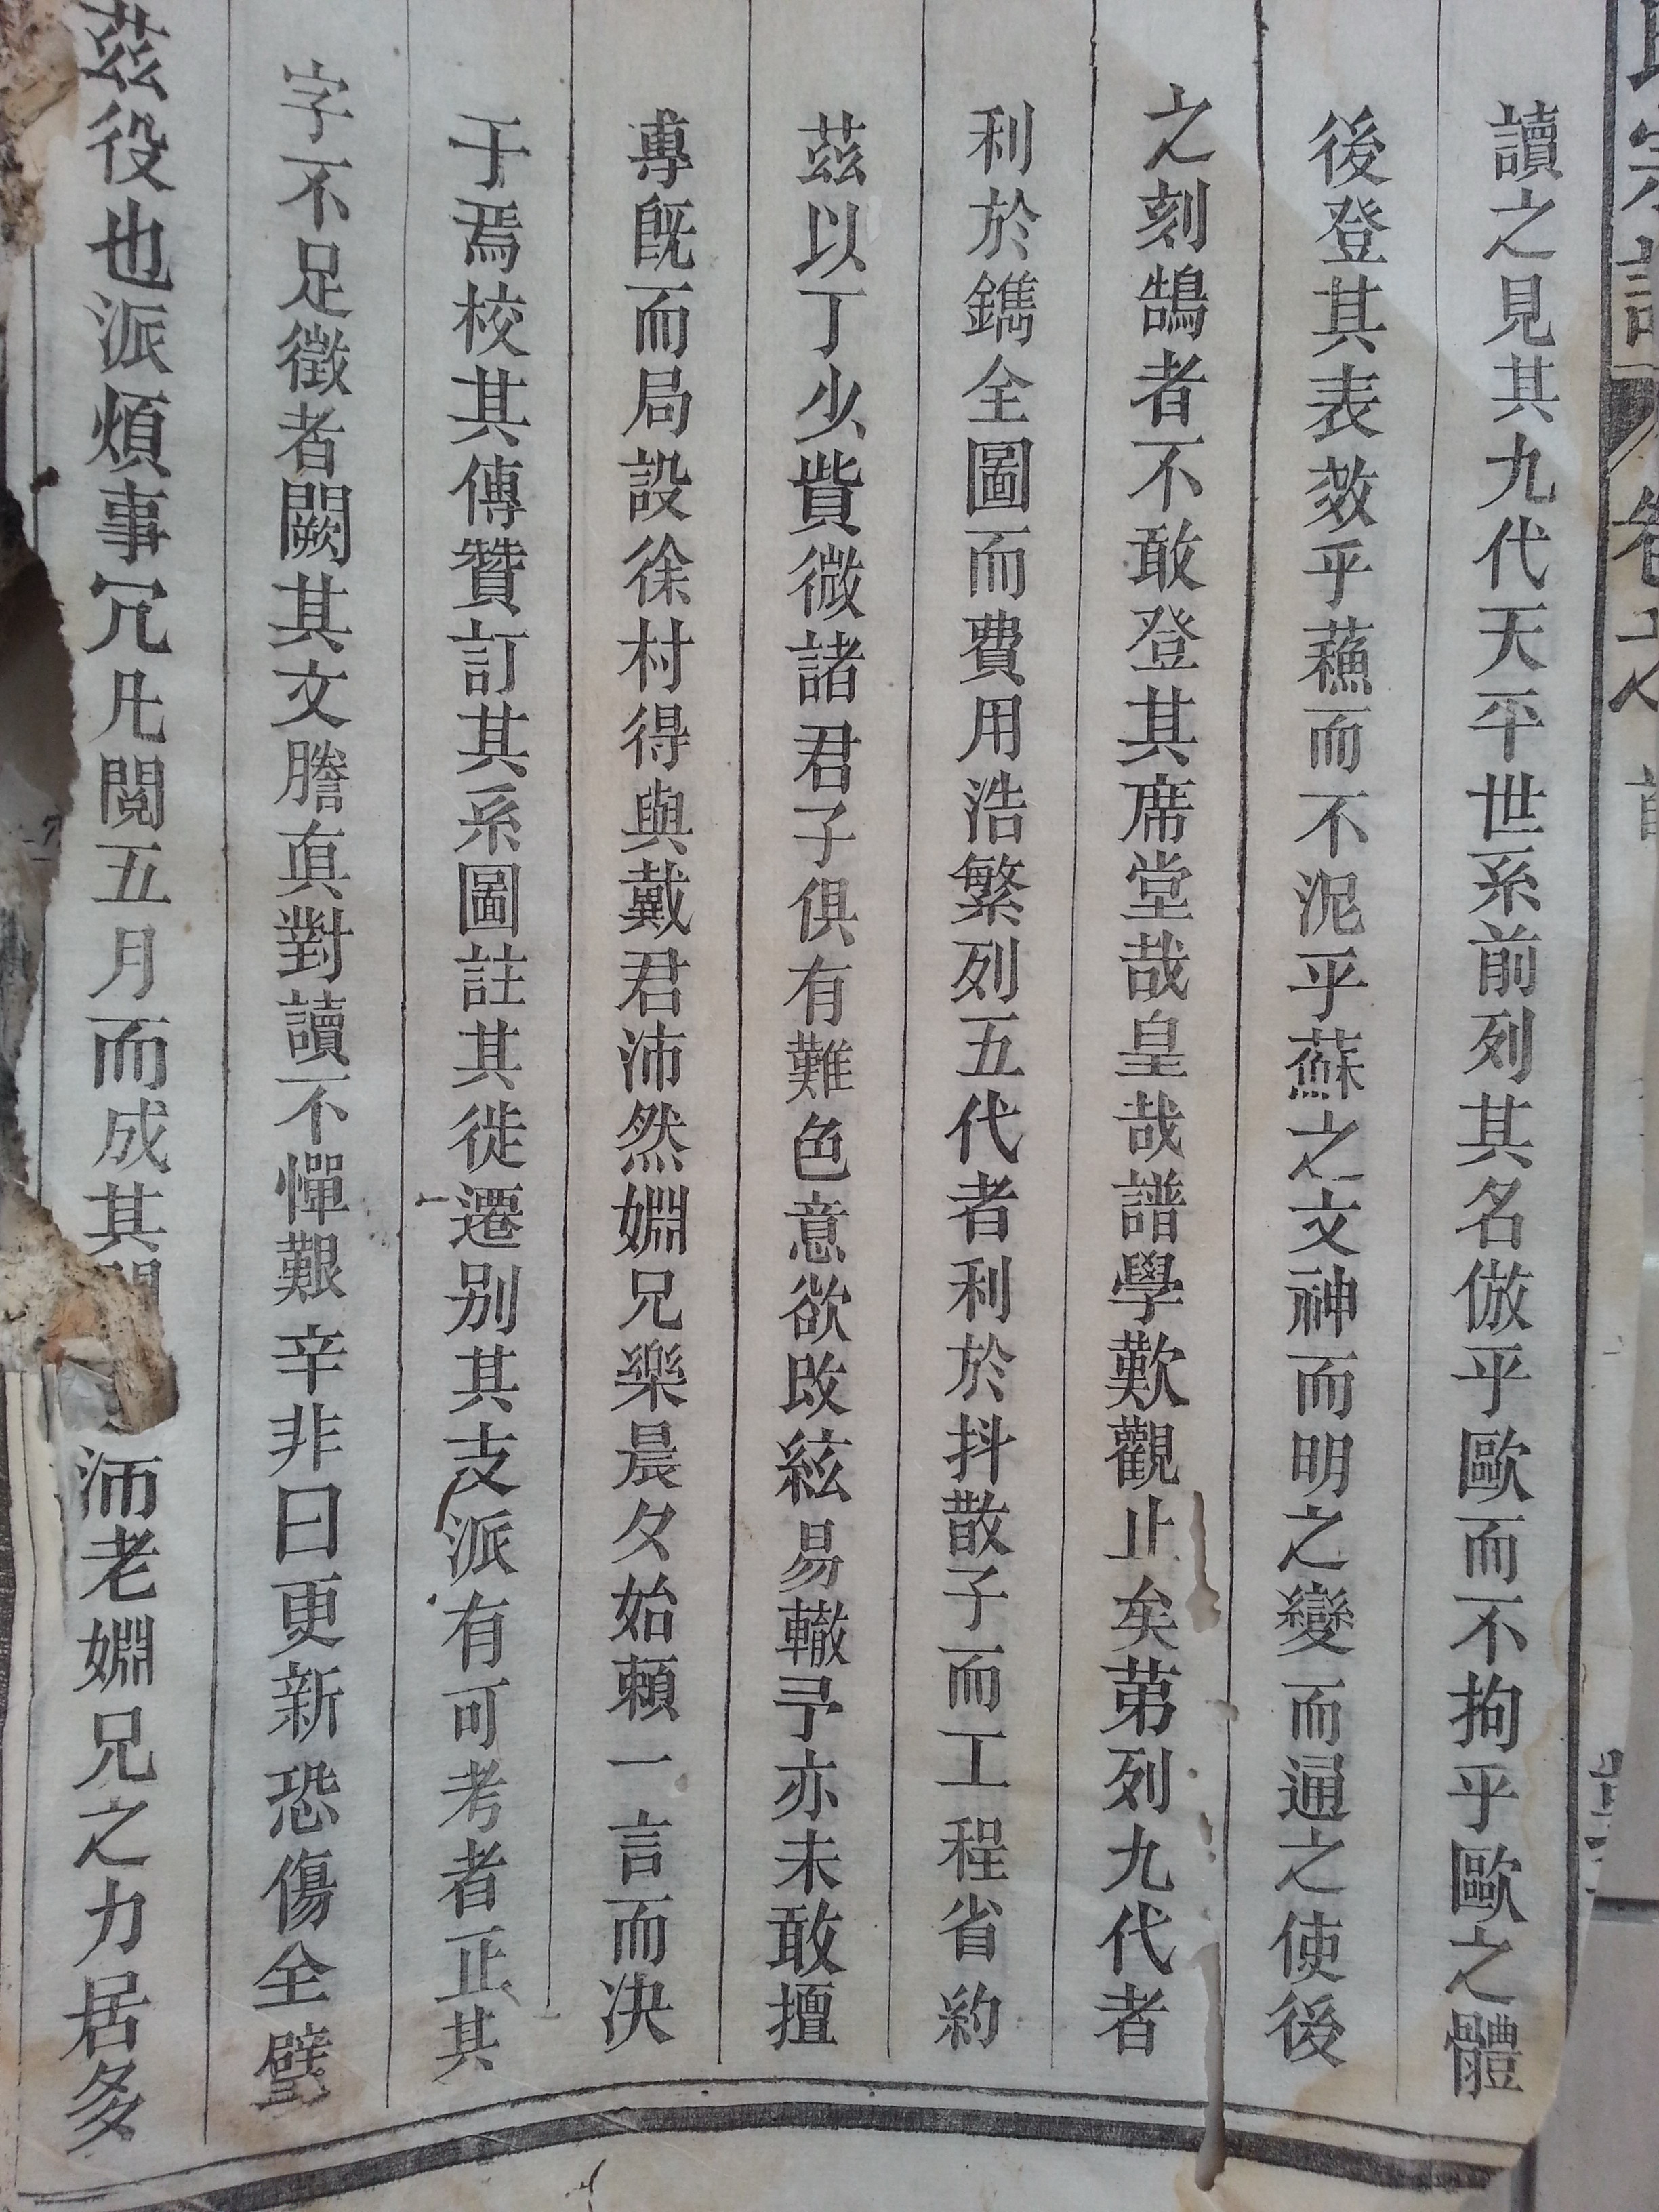 宗譜 卷之 首
讀之見其九代天平世系前列其名倣乎歐而不拘乎歐之體
後登其表效乎蘓而不泥乎蘇之文神而明之變而通之使後
之刻鵠者不敢登其席堂哉皇哉譜學歎觀止矣苐列九代者
利於鐫全圖而費用浩繁列五代者利於抖散子而工程省約
茲以丁少貲微諸君子俱有難色意欲改絃易轍予亦未敢擅
專旣而局設徐村得與戴君沛然姻兄樂晨夕始賴一言而决
于焉校其傳贊訂其系圖註其徙遷別其支派有可考者正其
字不足徵者闕其文謄眞對讀不憚艱辛非曰更新恐傷全璧
茲役也派煩事冗凡閱五月而成其間 沛老姻兄之力居多